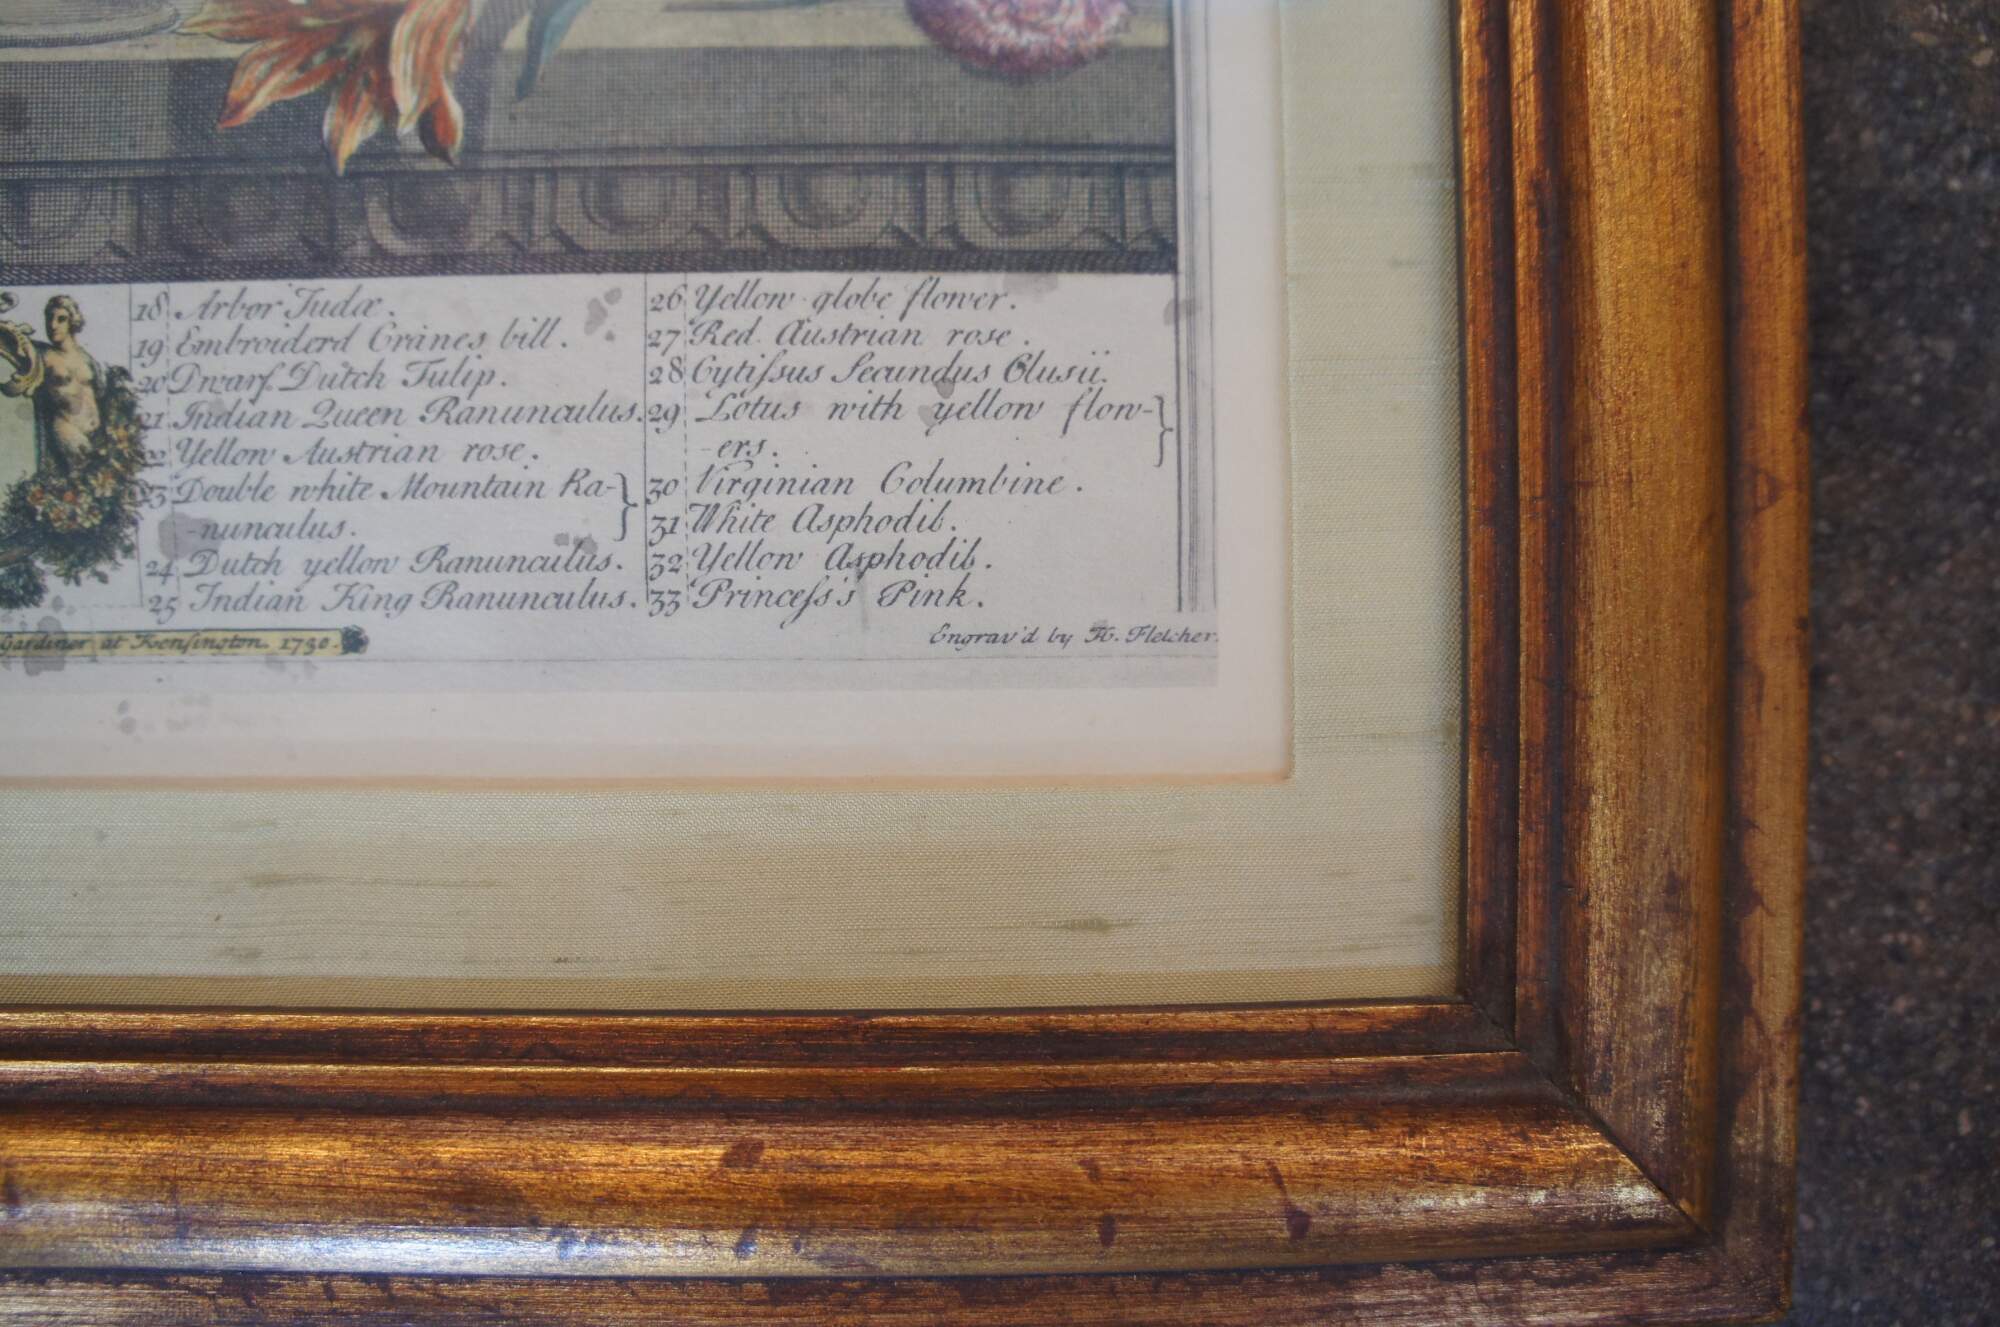 18 Arbor Judæ.
19 Embroiderd Cranes bill.
20 Dwarf Dutch Tulip.
21. Indian Queen Ranunculus.
22 Yellow Austrian rose.
23 Double white Mountain Ra-
-nunculus.
24 Dutch yellow Ranunculus.
25 Indian King Ranunculus.
26 Yellow globe flower.
27 Red Austrian rose.
28 Cytiſsus Secundus Clusii.
29 Lotus with yellow flow-
-ers.
30 Virginian Columbine.
31 White Asphodil.
32 Yellow Asphodil.
33 Princeſs's Pink.
Gardiner at Kenſington. 1730.
Engrav'd by H. Fletcher.